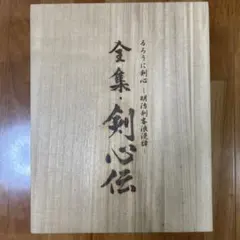 るろうに剣心－明治剣客浪漫譚
全集・剣心伝